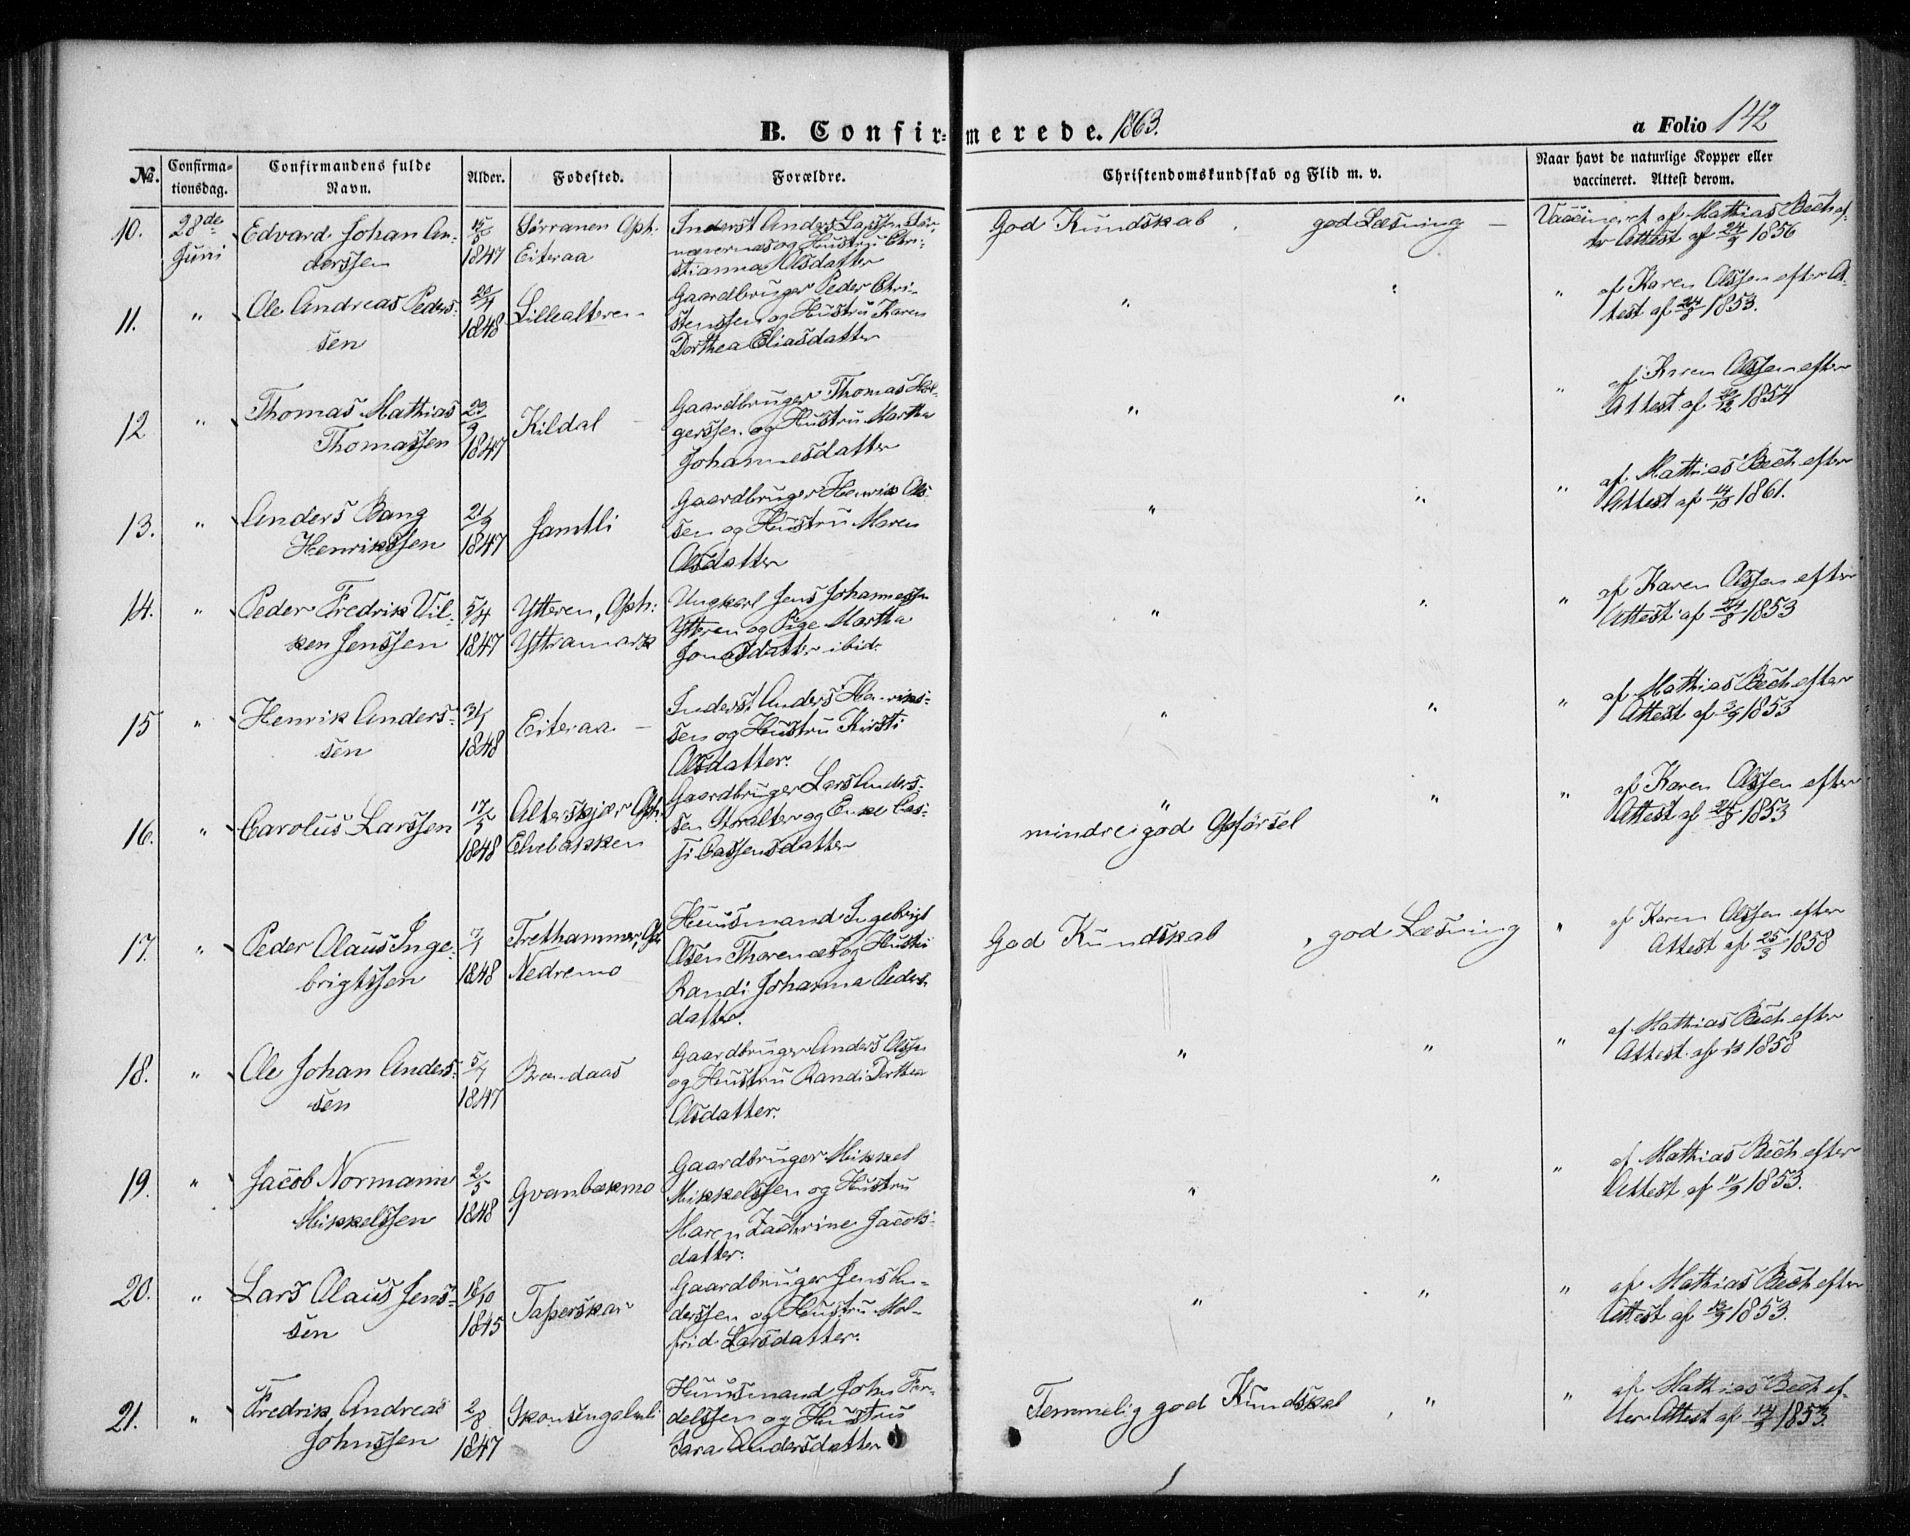 B. Confirmerede. 1863.
a Folio 142
No. Confirmationsdag. Confirmandens fulde Navn. Alder. Fødested. Forældre. Christendomskundskab og Flid m. v. Naar havt de naturlige Kopper eller vaccineret. Attest derom.
10. 28de Juni
Edvard Johan An-
derssen
1847
Sørranen Oph.
Eiteraa
Inderst Anders Larssen
og Hustru Chri-
stianna Olsdatter
God Kundskab, god Læsning —
Vaccineret af Mathias Bech ef-
ter Attest af 24/9 1856
11. "
Ole Andreas Peders-
sen
1848
Lillealteren -
Gaardbruger Peder Chri-
stenssen og Hustru Karen
Dorthea Eliasdatter
" "
" af Karen Olssen efter At-
test af 24/8 1853.
12 "
Thomas Mathias
Thomassen
23/9
1847
Kildal -
Gaardbruger Thomas Hol-
gerssen og Hustru Martha
Johannesdatter
" "
" af Karen Olssen efter
Attest af 1854
13. "
Anders Bang
Henrikssen
21/9
1847
Jamtli
Gaardbruger Henrik Ols-
sen og Hustru Maren
Olsdatter
" "
" af Mathias Bech efter
Attest af 14/10 1861.
14. "
Peder Fredrik Vil-
ken Jenssen
5/4
1847
Ytteren, Oph:
Yttramark
Ungkarl Jens Johannessen
Ytteren og Pige Martha
Jonasdatter ibid.
" "
" af Karen Olssen efter
Attest af 24/8 1853
15 "
Henrik Anders-
sen
31/1
1848
Eiteraa -
Inderst Anders Henriks-
sen og Hustru Kirsti
Olsdatter.
" "
" af Mathias Bech efter
Attest af 3/9 1853
16. "
Carolus Larssen
17/5
1848
Alterskjær Oph.
Elvebakken
Gaardbruger Lars Anders-
sen Storalter og Enke
" "
mindre god Opførsel
" af Karen Olssen efter
Attest af 24/8 1853
17. "
Peder Olaus Inge-
brigtssen
3/1
1848
Trethammer, Oph.
Nedremo
Huusmand Ingebrigt
Olsen Thorenæs og Hustru
Randi Johanna Peders-
datter.
God Kundskab, god Læsning
" af Karen Olssen efter
Attest af 25/3 1858
18. "
Ole Johan Anders-
sen
5/7
1847
Brandaas
Gaardbruger Anders Olsen
og Hustru Randi Dorthea
Olsdatter.
" "
" af Mathias Bech efter
Attest af 1858
19. "
Jacob Normann
Mikkelssen
2/5
1848
Gvanbakmo
Gaardbruger Mikkel
Mikkelssen og Hustru
Maren Zachrine Jacobs-
datter.
" "
" af Mathias Bech efter
Attest af 11/9 1853.
20. "
Lars Olaus Jens-
sen
18/10
1845
Tapperskar
Gaardbruger Jens An-
derssen og Hustru Mal-
frid Larsdatter.
" "
" af Mathias Bech efter
Attest af 1853.
21. "
Fredrik Andreas
Johnssen
2/8
1847
Skonsengalmli
Huusmand John For-
delssen og Hustru
Sara Andersdatter
Temmelig god Kundskab, "
" af Mathias Bech ef-
ter Attest af 14/9 1853